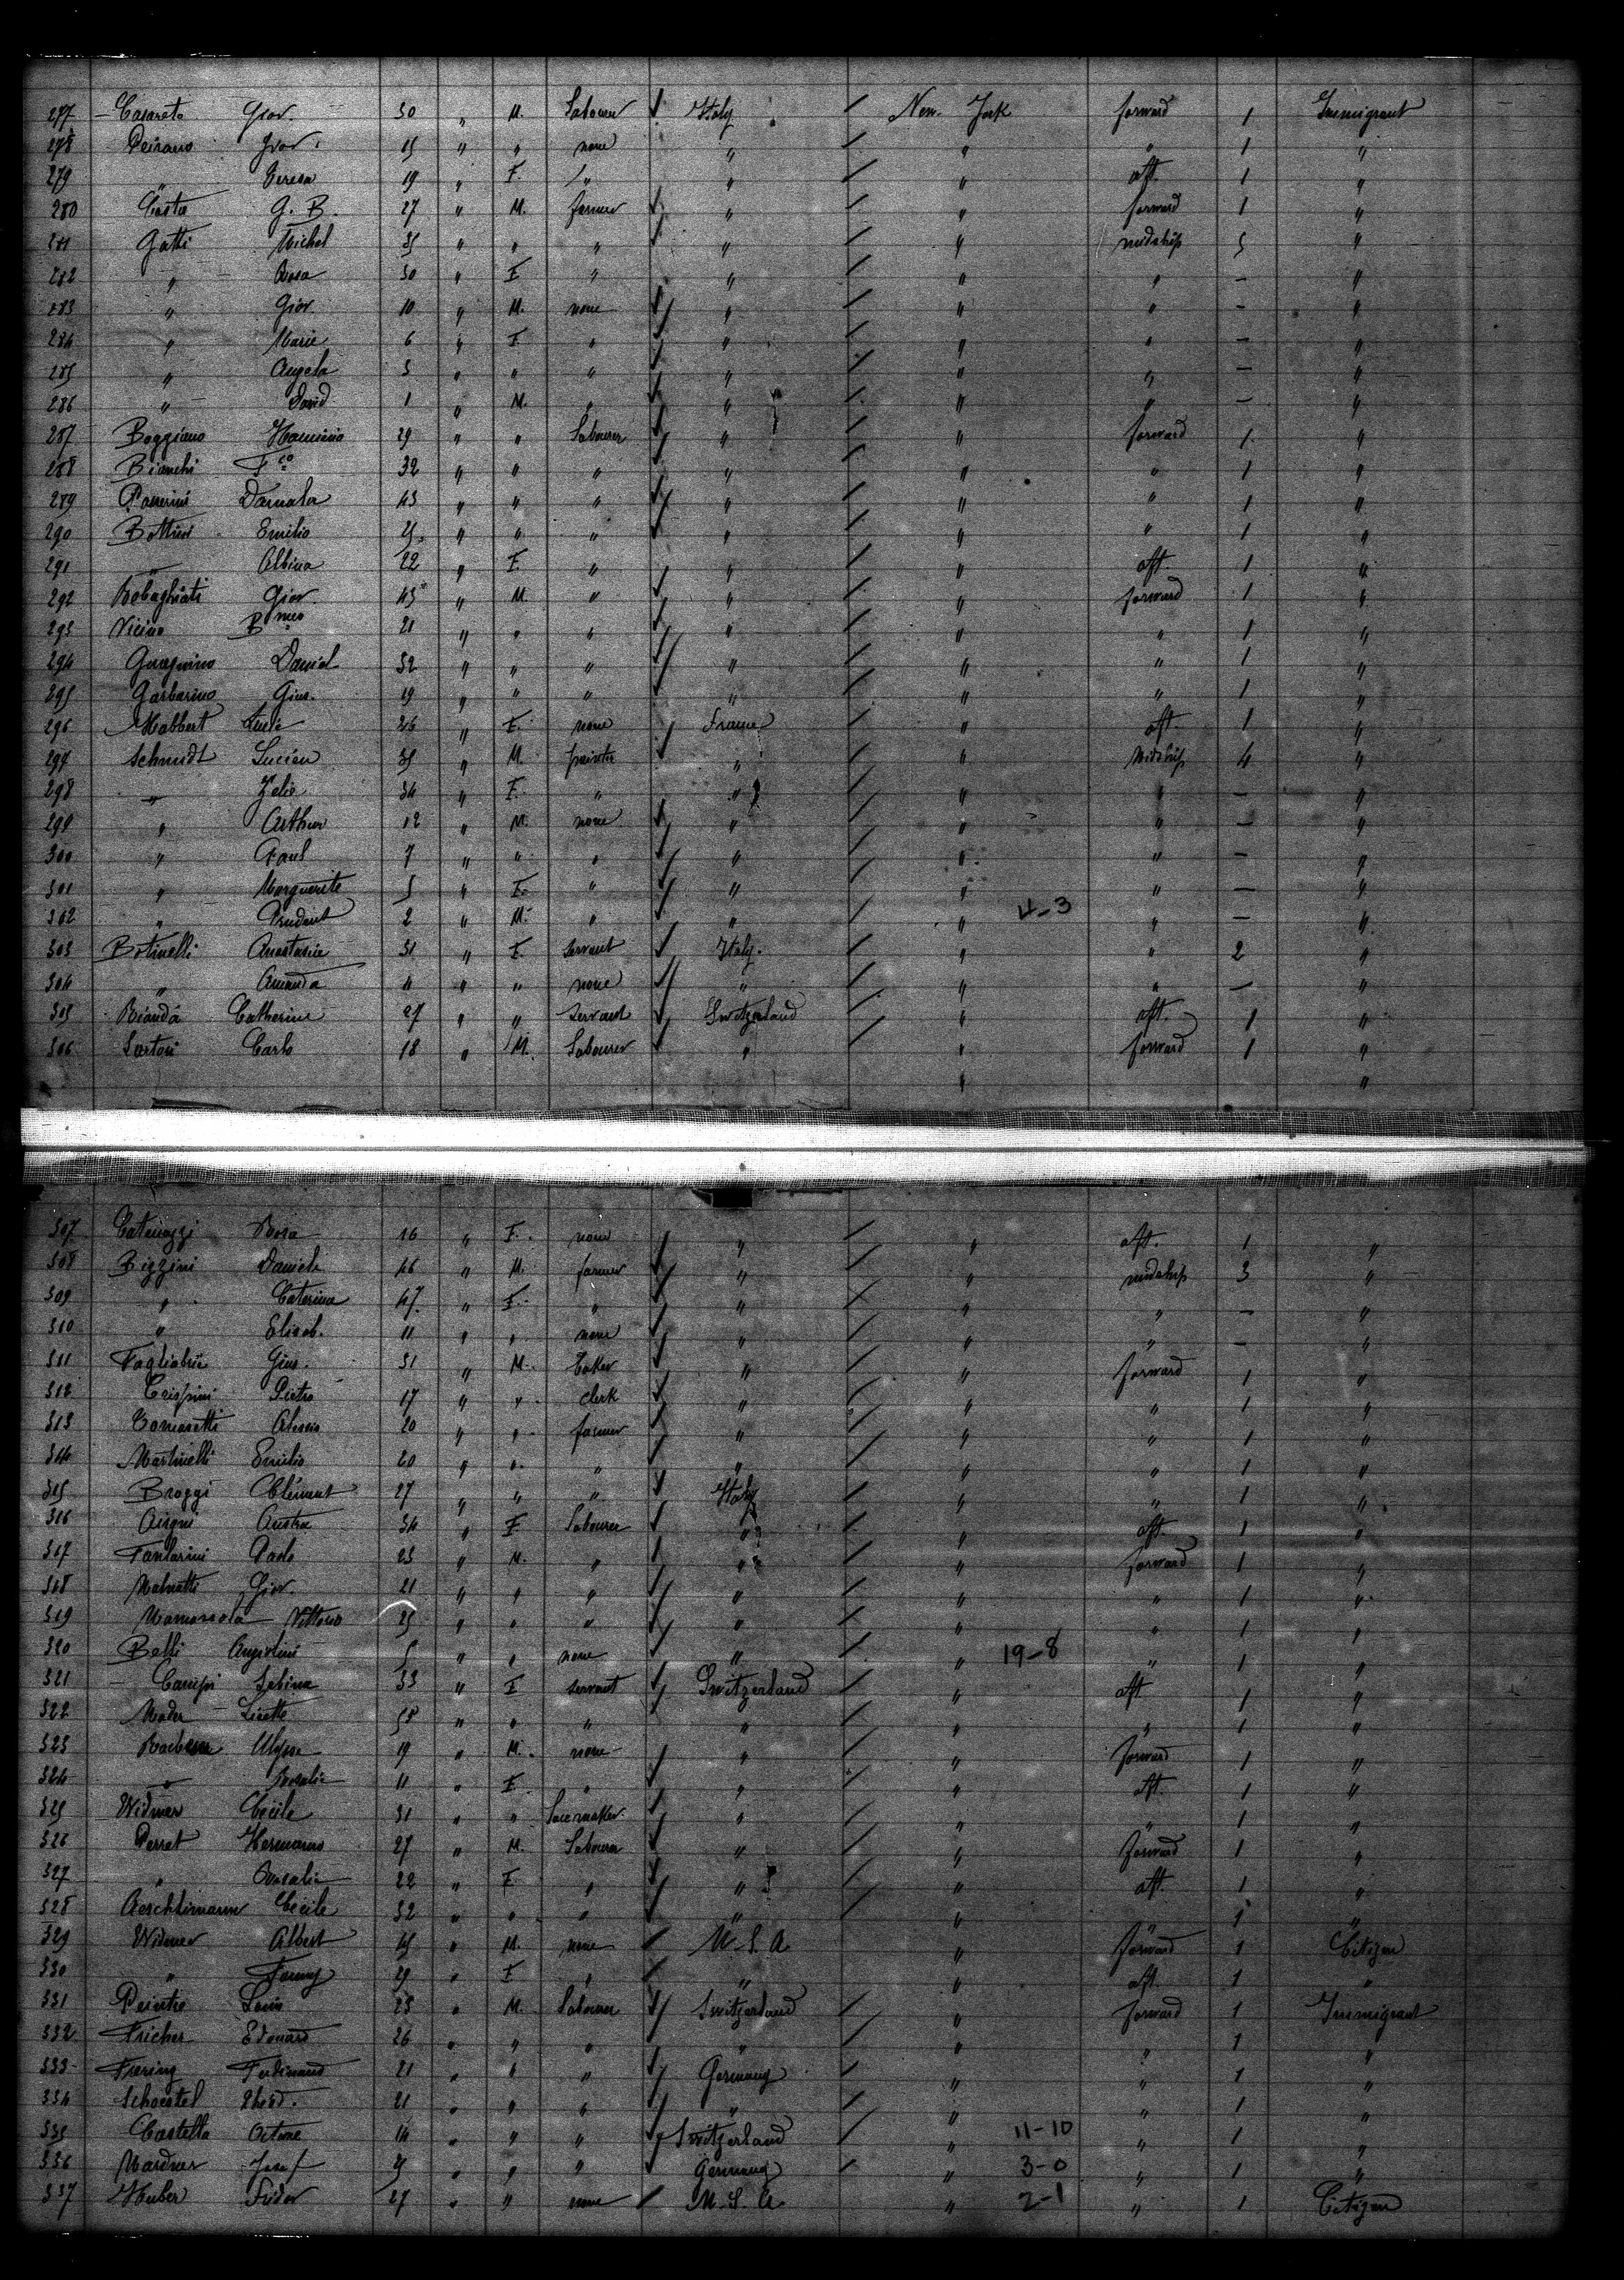 277 Casareto Giov. 30 " M. Labourer Italy New York forward 1 Immigrant
278 Peirano Giov. 15 " " none " " " 1 "
279 " Teresa 19 " F. " " " aft. 1 "
280 Costa G. B. 27 " M. farmer " " forward 1 "
281 Gatti Michel 35 " " " " " midship 5 "
282 " Rosa 30 " F " " " " – "
283 " Giov. 10 " M. none " " " – "
284 " Marie 6 " F " " " " – "
285 " Angela 3 " " " " " " – "
286 " David 1 " M. " " " " – "
287 Boggiano 29 " " Labourer " " forward 1 "
288 Bianchi F.co 32 " " " " " " 1 "
289 43 " " " " " " 1 "
290 Emilio 25 " " " " " " 1 "
291 " Albina 22 " F. " " " aft. 1 "
292 Giov. 45 " M. " " " forward 1 "
293 Vicino B.meo 21 " " " " " " 1 "
294 Daniel 32 " " " " " " 1 "
295 Garbarino Gius. 19 " " " " " " 1 "
296 Mabbert 26 " F. none France " aft. 1 "
297 Schmidt Lucien 35 " M. painter " " Midship 4 "
298 " Zelie 34 " F. " " " " – "
299 " Arthur 12 " M. none " " " – "
300 " Paul 7 " " " " " " – "
301 " Marguerite 5 " F. " " " " – "
302 " Prudent 2 " M. " " " 4-3 " – "
303 Botinelli Anastasie 31 " F. servant Italy. " " 2 "
304 " Amanda 4 " " none " " " – "
305 Bianda Catherine 27 " " servant Switzerland " aft. 1 "
306 Sartori Carlo 18 " M. Labourer " " forward 1 "
" "
307 Catenazzi Rosa 16 " F. none " " aft. 1 "
308 Bizzini Daniele 46 " M. farmer " " midship 3 "
309 " Caterina 47 " F. " " " " – "
310 " Elisab. 11 " " none " " " – "
311 Tagliabue Gius. 31 " M. baker " " forward 1 "
312 Crispini Pietro 17 " " clerk " " " 1 "
313 Tomasetti Alessio 20 " " farmer " " " 1 "
314 Martinelli Emilio 20 " " " " " " 1 "
315 Broggi Clément 27 " " " Italy " " 1 "
316 34 " F Labourer " " aft. 1 "
317 Paolo 23 " M. " " " forward 1 "
318 Malnatti Giov. 21 " " " " " " 1 "
319 Vittorio 25 " " " " " " 1 "
320 Belli 5 " " none " " 19-8 " 1 "
321 Sabina 33 " F servant Switzerland " aft 1 "
322 Mader Lisette 58 " " " " " " 1 "
323 Ulysse 19 " M. none " " forward 1 "
324 " Rosalie 11 " F. " " " aft. 1 "
325 Widmer Cécile 31 " " Lacemaker " " " 1 "
326 Perret Hermann 27 " M. Labourer " " forward 1 "
327 " Rosalie 22 " F. " " " aft. 1 "
328 Aeschlimann Cécile 32 " " " " " " 1 "
329 Widmer Albert 45 " M. none U.S.A. " forward 1 Citizen
330 " Fanny 29 " F " " " aft. 1 "
331 Peintre Louis 23 " M. Labourer Switzerland " forward 1 Immigrant
332 Fricher Edouard 26 " " " " " " 1 "
333 Ferdinand 21 " " " Germany " " 1 "
334 21 " " " " " " 1 "
335 Castella Octave 14 " " " Switzerland " 11-10 " 1 "
336 Mardner Josef 25 " " " Germany " 3-0 " 1 "
337 Huber Fridor 27 " " none U.S.A. " 2-1 " 1 Citizen